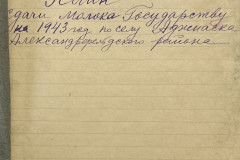 План
сдачи Молока Государству
на 1943 год по селу Аджиаска
Александерфельдского района